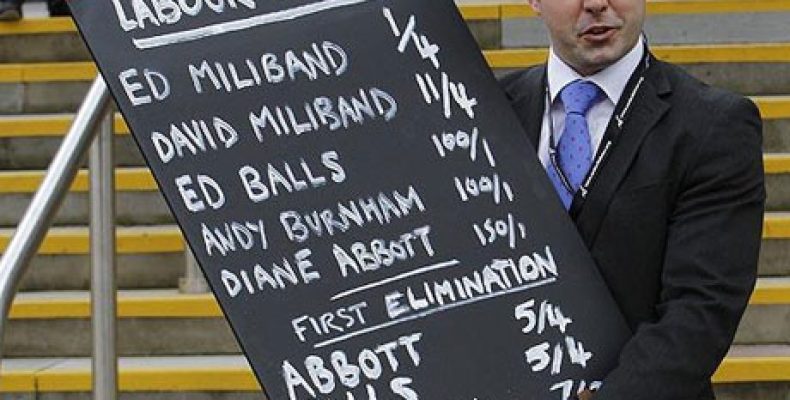 LABOUR
ED MILIBAND 1/4
DAVID MILIBAND 11/4
ED BALLS 100/1
ANDY BURNHAM 100/1
DIANE ABBOTT 150/1
FIRST ELIMINATION
ABBOTT 5/4
5/4